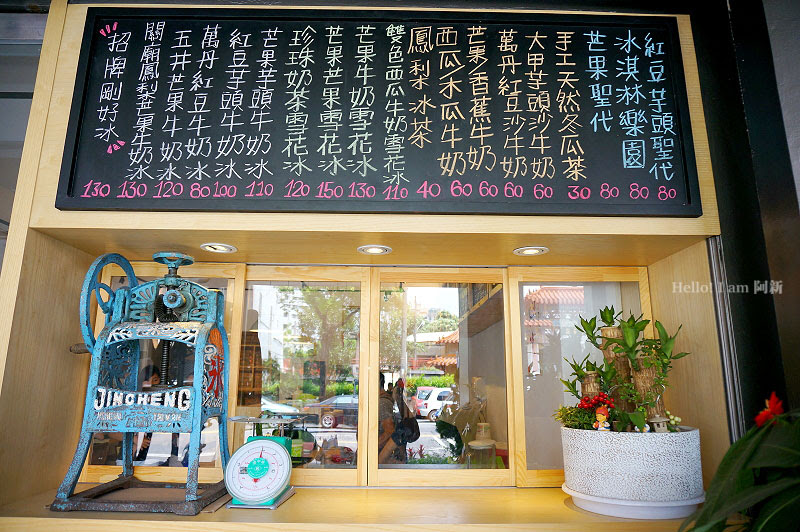 紅豆芋頭聖代 80
冰淇淋樂園 80
芒果聖代 80
手工天然冬瓜茶 30
大甲芋頭沙牛奶 60
萬丹紅豆沙牛奶 60
芒果/香蕉牛奶 60
西瓜/木瓜牛奶 60
鳳梨冰茶 40
雙色西瓜牛奶雪花冰 110
芒果牛奶雪花冰 130
芒果芒果雪花冰 150
珍珠奶茶雪花冰 120
芒果芋頭牛奶冰 110
紅豆芋頭牛奶冰 100
萬丹紅豆牛奶冰 80
玉井芒果牛奶冰 120
關廟鳳梨芒果牛奶冰 130
招牌剛好冰 130
JINCHENG
冰
Hello! I am 阿新